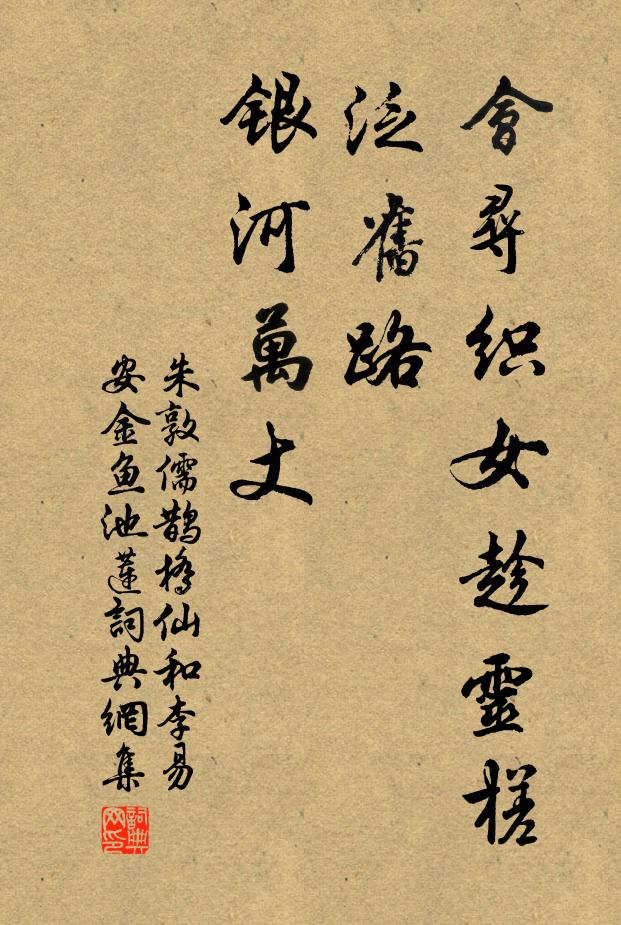 會尋织女趁靈槎
泛舊路
銀河萬丈
朱敦儒鵲橋仙和李易
安金魚池蓮詞典網集
詞典
网印